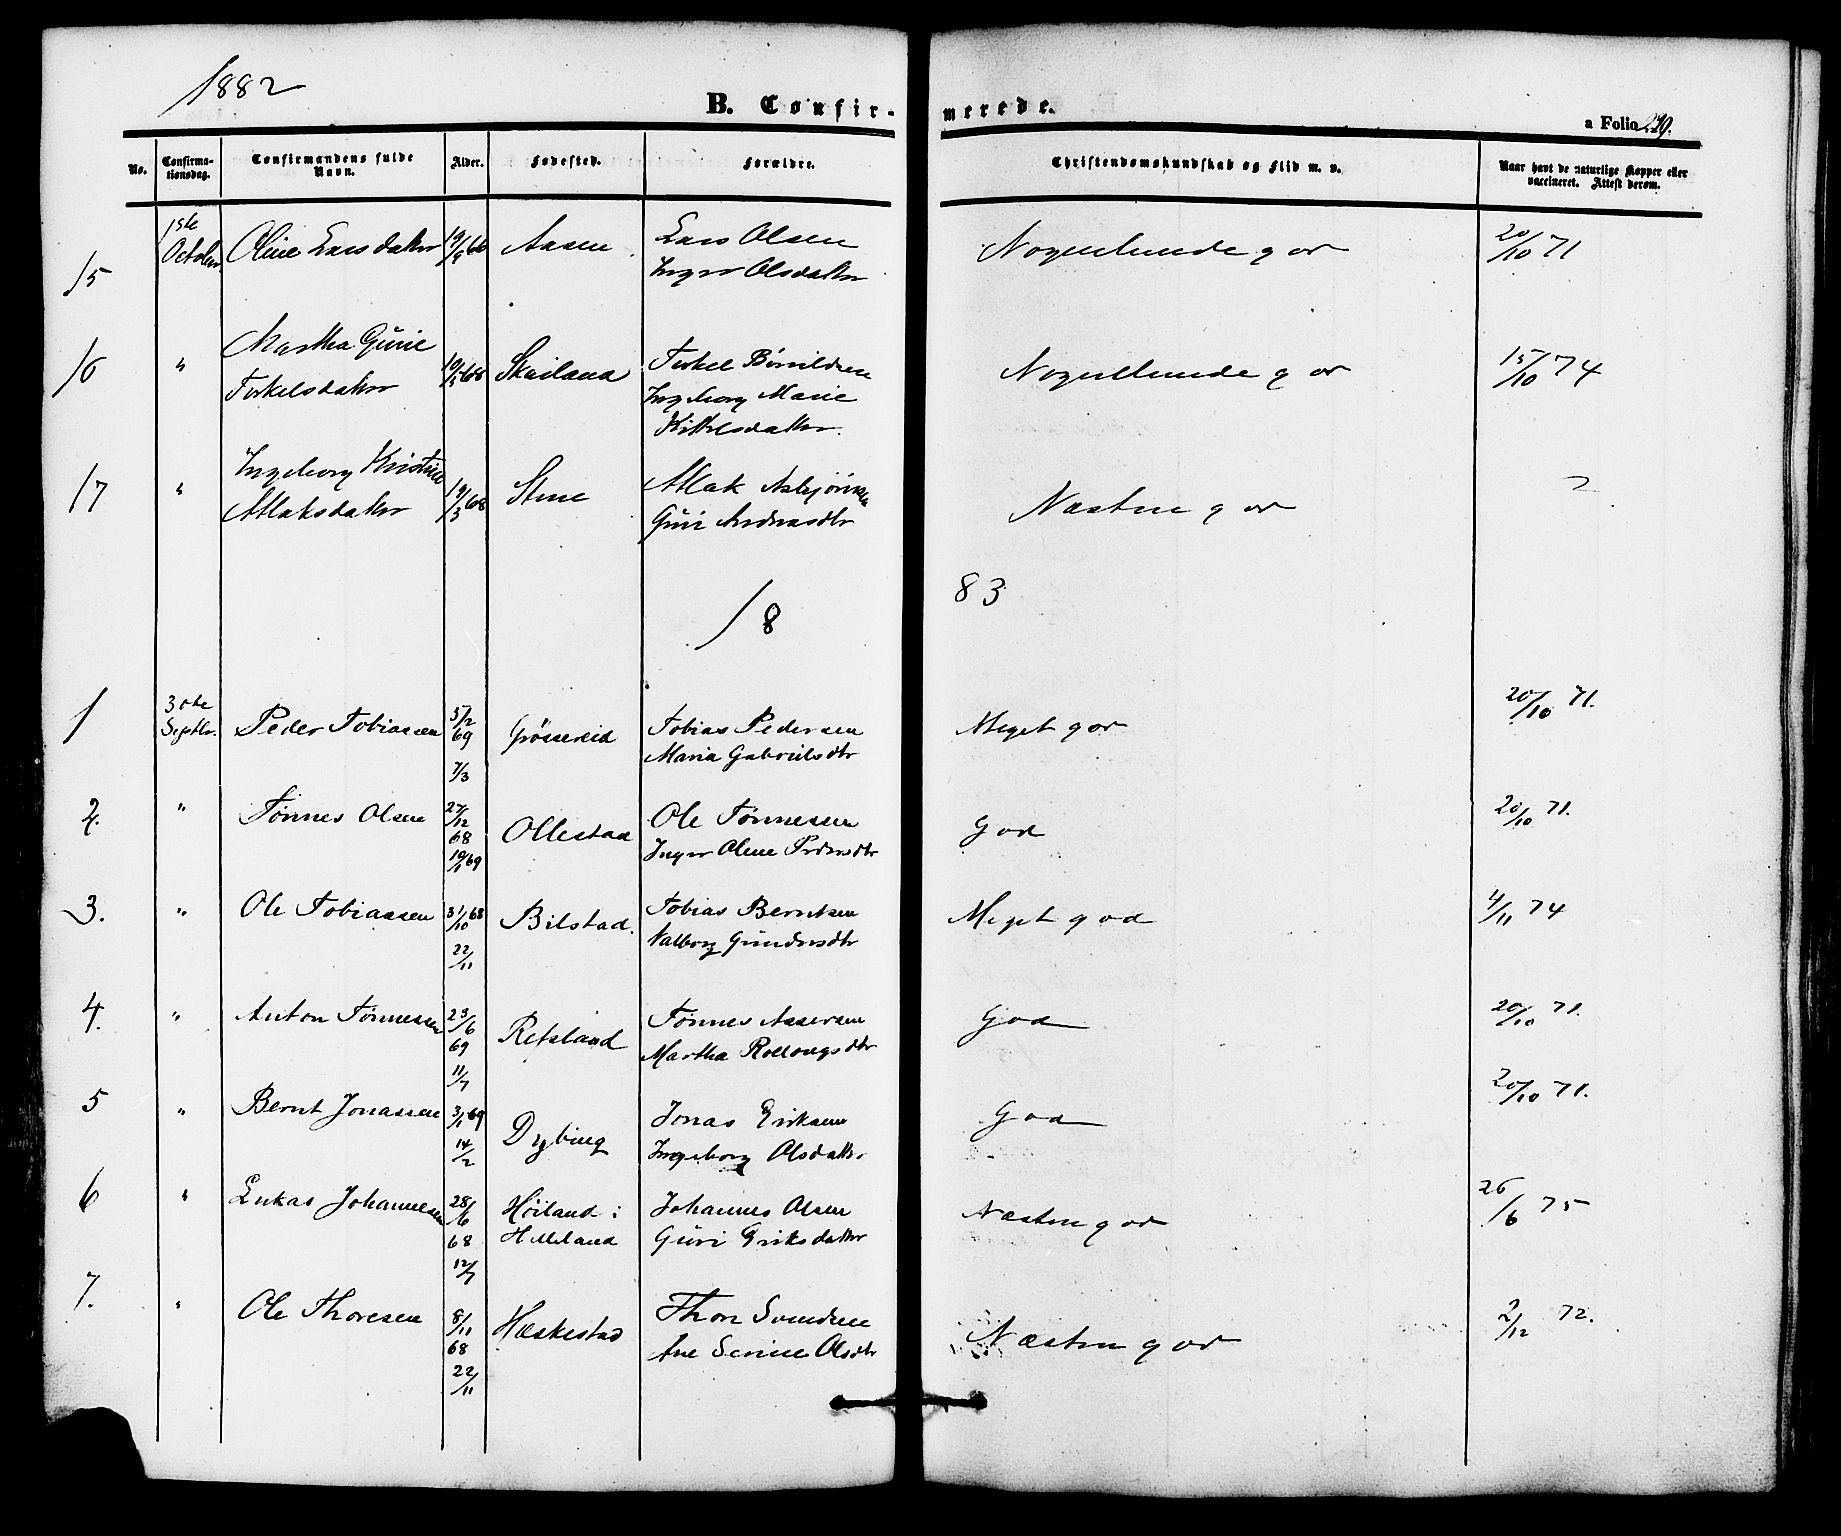 1882
B. Confir-
merede.
a Folio 219.
No.
Confirma-
tionsdag.
Confirmandens fulde
Navn.
Alder.
Fødested.
Forældre.
Christendomskundskab og Flid m. v.
Naar havt de naturlige Kopper eller
vaccineret. Attest derom.
15 1ste October Oline Larsdatter 66 Aasen Lars Olsen Nogenlunde god 20/10 71
Inger Olsdatter
16 " Martha Gurie 68 Skailand Terkel Nogenlunde god 15/10 74
Terkelsdatter Ingeborg Marie
Kittelsdatter.
17 " Ingeborg Kristine 68 Stene Atlak Asbjörnsen Næsten god
Atlaksdatter Guri Andreasdtr
18 83
1 30te Septbr. Peder Tobiassen 5/2 69 Grøssereid Tobias Pedersen Meget god 20/10 71.
7/3 Maria Gabrielsdtr
2. " Tønnes Olsen 27/12 68 Ollestad Ole Tønnesen God 20/10 71.
10/1 69 Inger Oline Pedersdtr
3. " Ole Tobiassen 31/10 68 Bilstad. Tobias Berntsen Meget god 4/11 74
22/11 Valborg Gundersdtr
4. " Anton Tønnessen 23/6 69 Refsland Tønnes Assersen God 20/10 71.
11/7 Martha Rollougsdtr
5 " Bernt Jonassen 3/1 69 Dybing Jonas Eriksen God 20/10 71.
14/2 Ingeborg Olsdatter.
6 " Lukas Johannesen 28/6 68 Høiland i Johannes Olsen Næsten god 26/6 75
12/7 Helleland Guri Eriksdatter
7. " Ole Thoresen 8/11 68 Hæskestad Thore Svendsen Næsten god 2/12 72.
22/11 Ane Serine Olsdtr